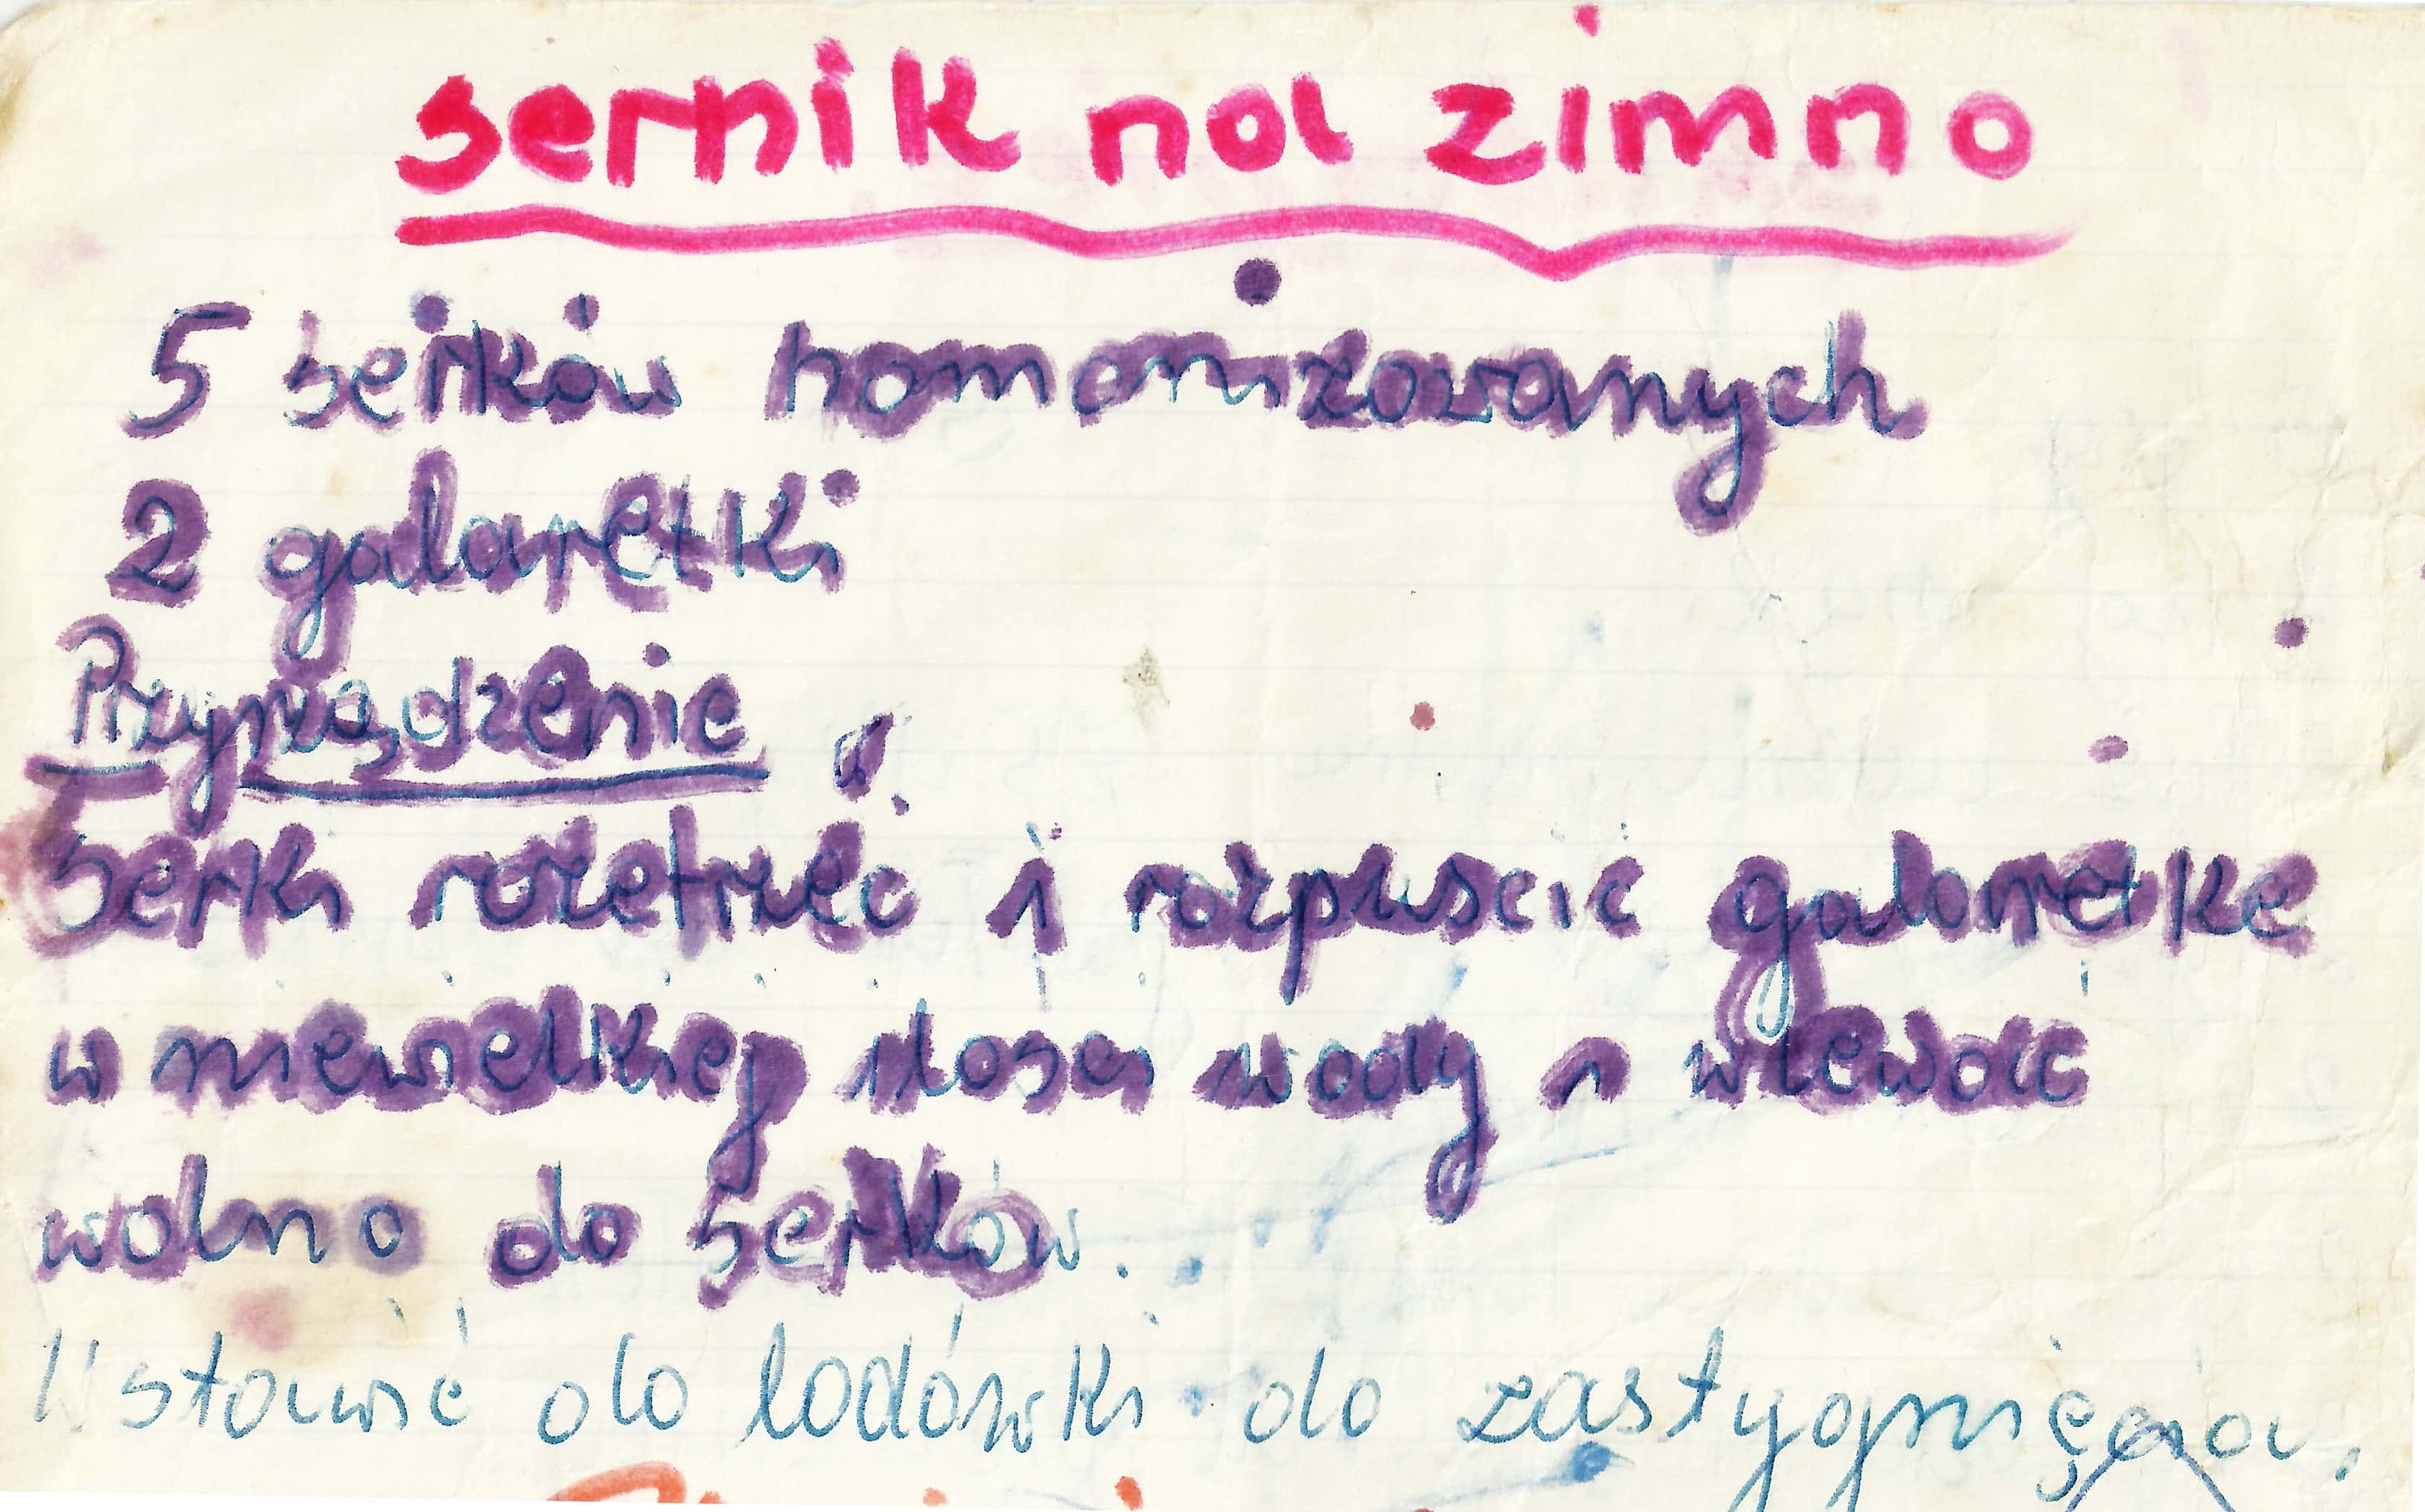 sernik na zimno
5 serków homonizowanych
2 galaretki
Przyrządzenie
Serki rozetrzeć i rozpuscić galaretke
w niewielkiej ilosci wody i wlewać
wolno do serków.
Wstawić do lodówki do zastygnięcia.